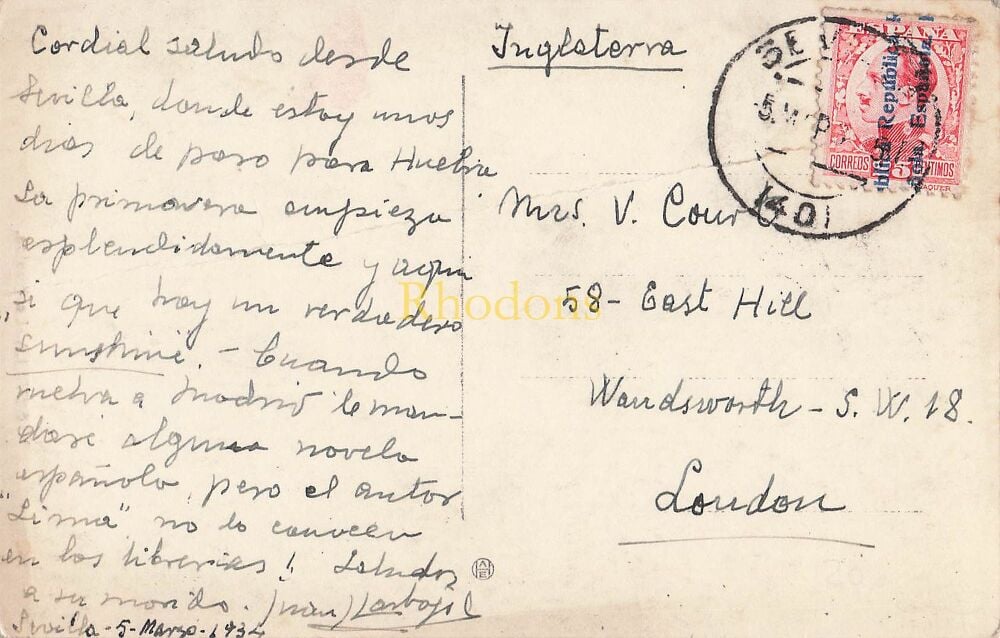 Cordial saludo desde
Sevilla, donde estoy unos
dias de paso para Huelva
La primavera empieza
esplendidamente y aqui
si que hay un verdadero
"sunshine". - Cuando
vuelva a Madrid le man-
daré alguna novela
española, pero el autor
"Lima" no lo conocen
en las librerias! Saludos
a su marido. (Juan)
Sevilla - 5 - Marzo - 1934
Inglaterra
Mrs. V. Cour
58 - East Hill
Wandsworth - S. W. 18.
London
ESPAÑA
República
Española
CORREOS
CENTIMOS
(40)
Rhodons